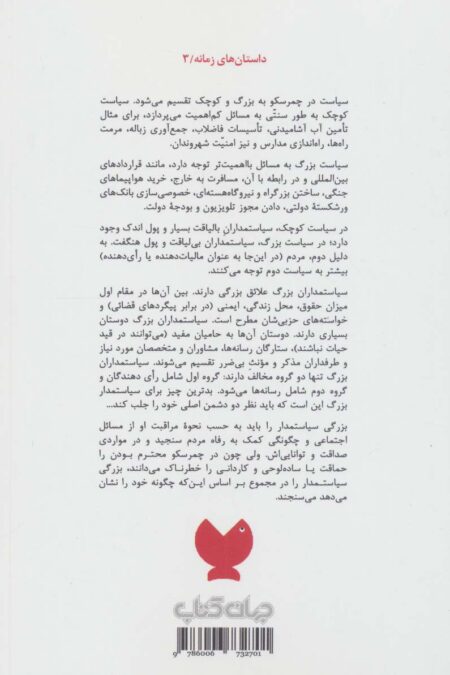 داستان‌های زمانه/۳
سیاست در چمرسکو به بزرگ و کوچک تقسیم می‌شود. سیاست
کوچک به طور سنتّی به مسائل کم‌اهمیت می‌پردازد، برای مثال
تأمین آب آشامیدنی، تأسیسات فاضلاب، جمع‌آوری زباله، مرمت
راه‌ها، راه‌اندازی مدارس و نیز امنیّت شهروندان.
سیاست بزرگ به مسائل بااهمیت‌تر توجه دارد، مانند قراردادهای
بین‌المللی و در رابطه با آن، مسافرت به خارج، خرید هواپیماهای
جنگی، ساختن بزرگراه و نیروگاه‌هسته‌ای، خصوصی‌سازی بانک‌های
ورشکستهٔ دولتی، دادن مجوز تلویزیون و بودجهٔ دولت.
در سیاست کوچک، سیاستمداران بالیاقت بسیار و پول اندک وجود
دارد؛ در سیاست بزرگ، سیاستمداران بی‌لیاقت و پول هنگفت. به
دلیل دوم، مردم (در این‌جا به عنوان مالیات‌دهنده یا رأی‌دهنده)
بیشتر به سیاست دوم توجه می‌کنند.
سیاستمداران بزرگ علائق بزرگی دارند. بین آن‌ها در مقام اول
میزان حقوق، محل زندگی، ایمنی (در برابر پیگردهای قضائی) و
خواسته‌های حزبی‌شان مطرح است. سیاستمداران بزرگ دوستان
بسیاری دارند. دوستان آن‌ها به حامیان مفید (می‌توانند در قید
حیات نباشند)، ستارگان رسانه‌ها، مشاوران و متخصصان مورد نیاز
و طرفداران مذکر و مؤنث بی‌ضرر تقسیم می‌شوند. سیاستمداران
بزرگ تنها دو گروه مخالف دارند: گروه اول شامل رأی دهندگان و
گروه دوم شامل رسانه‌ها می‌شود. بدترین چیز برای سیاستمدار
بزرگ این است که باید نظر دو دشمن اصلی خود را جلب کند...
بزرگی سیاستمدار را باید به حسب نحوهٔ مراقبت او از مسائل
اجتماعی و چگونگی کمک به رفاه مردم سنجید و در مواردی
صداقت و توانایی‌اش. ولی چون در چمرسکو محترم بودن را
حماقت یا ساده‌لوحی و کاردانی را خطرناک می‌دانند، بزرگی
سیاستمدار را در مجموع بر اساس این‌که چگونه خود را نشان
می‌دهد می‌سنجند.
جهان کتاب
9 786006 732701